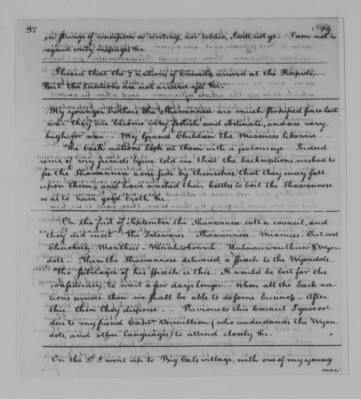 97
in strings of wampum or writing, nor tobacco, I will not go. I am not to
regard empty messages &c.
I heard that the 7 nations of Canada arrived at the Rapids.
But the nations are not arrived yet &c.
My younger brothers the Shawannese are much since last
war they are become very foolish and obstinate, and are very
high for war. My Grand Children the Miamies likewise
The back nations look at them with a jealous eye. Indeed
some of my friends have told me that the backnations wished to
see the Shawannese one side by themselves, that they may fall
upon them, and have wished their kettles to boil the Shawannese
so as to have good broth &c.
On the first of September the Shawannese call a council, and
they did meet the Delawares Shawannese Miamies
Cherokees &
dots. Then the Shawannese delivered a speech to the Wyondots.
The substance of his speech is this. It would be best for the
confederacy to wait a few days longer. When all the back na
tions arrive then we shall be able to do some business. After
this then they disperse. Previous to this Council I gave or
ders to my friend Capt. Vermillion (who understands the Wyon
dots, and other languages) to attend closely &c.
On the 2d I went up to Big Cats village, with one of my young